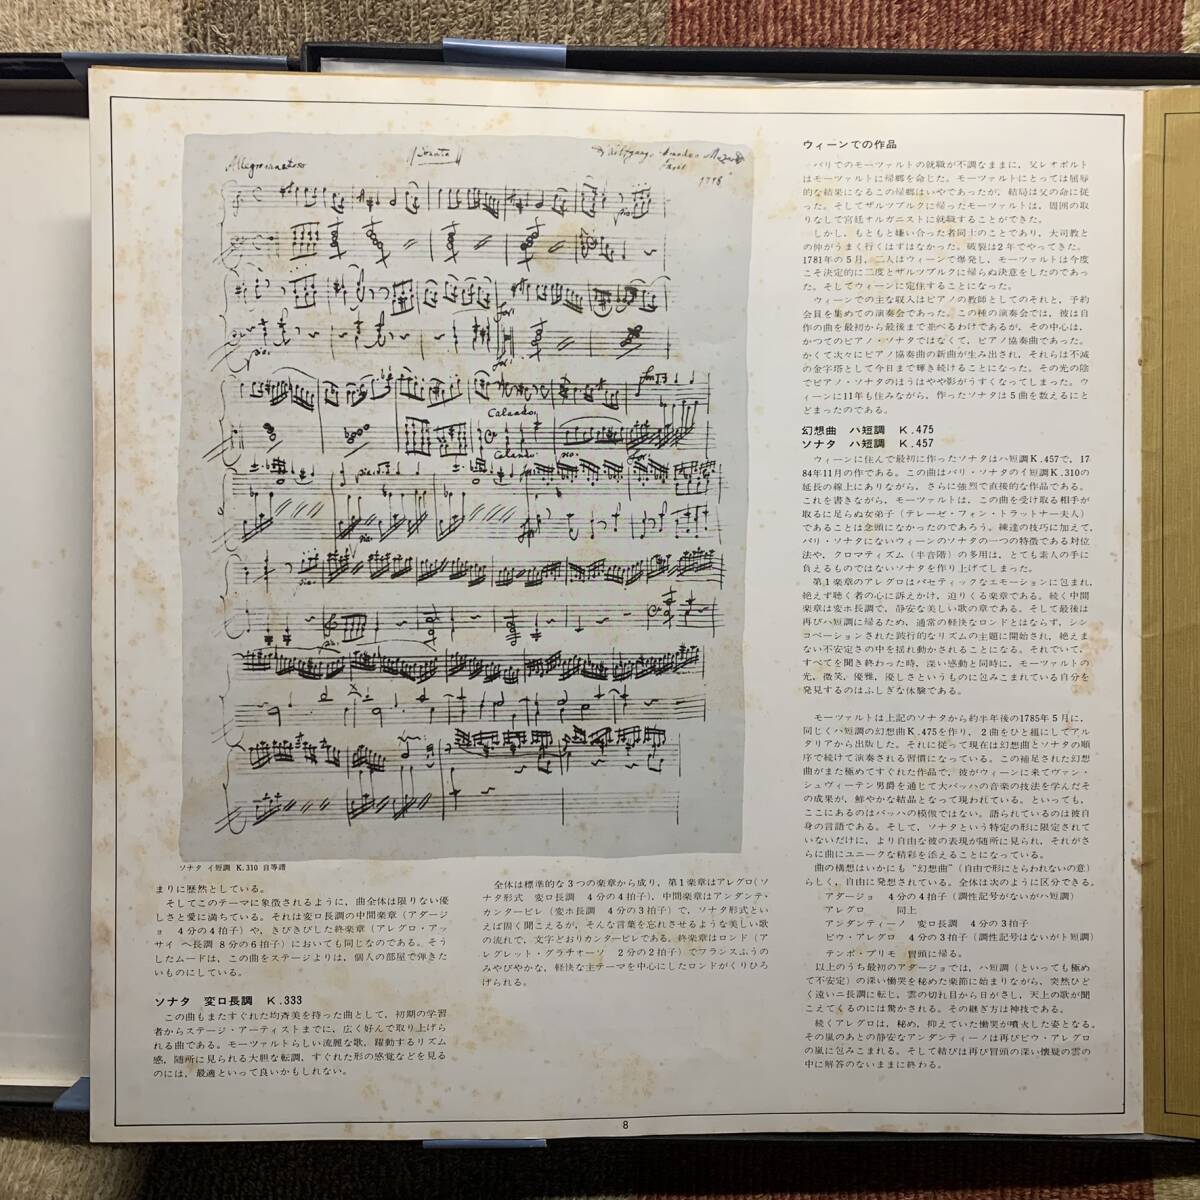 Allegro maestoso
Sonata
Wolfgango Amadeo Mozart
Calando
Calando
ソナタ イ短調 K.310 自筆譜
まりに歴然としている。
そしてこのテーマに象徴されるように，曲全体は限りない優
しさと愛に満ちている。それは変ロ長調の中間楽章（アダージ
ョ 4分の4拍子）や，きびきびした終楽章（アレグロ・アッ
サイ ヘ長調 8分の6拍子）においても同じなのである。そう
したムードは，この曲をステージよりは，個人の部屋で弾きた
いものにしている。
ソナタ 変ロ長調 K.333
この曲もまたすぐれた均斉美を持った曲として，初期の学習
者からステージ・アーティストまでに，広く好んで取り上げら
れる曲である。モーツァルトらしい流麗な歌，躍動するリズム
感，随所に見られる大胆な転調，すぐれた形の感覚などを見る
のには，最適といって良いかもしれない。
全体は標準的な3つの楽章から成り，第1楽章はアレグロ（ソ
ナタ形式 変ロ長調 4分の4拍子），中間楽章はアンダンテ・
カンタービレ（変ホ長調 4分の3拍子）で，ソナタ形式とい
えば固く聞こえるが，そんな言葉を忘れさせるような美しい歌
の流れで，文字どおりカンタービレである。終楽章はロンド（ア
レグレット・グラチオーソ 2分の2拍子）でフランスふうの
みやびやかな，軽快な主テーマを中心にしたロンドがくりひろ
げられる。
ウィーンでの作品
パリでのモーツァルトの就職が不調なままに，父レオポルト
はモーツァルトに帰郷を命じた。モーツァルトにとっては屈辱
的な結果になるこの帰郷はいやであったが，結局は父の命に従
った。そしてザルツブルクに帰ったモーツァルトは，周囲の取
りなしで宮廷オルガニストに就職することができた。
しかし，もともと嫌い合った者同士のことであり，大司教と
の仲がうまく行くはずはなかった。破裂は2年でやってきた。
1781年の5月，二人はウィーンで爆発し，モーツァルトは今度
こそ決定的に二度とザルツブルクに帰らぬ決意をしたのであっ
た。そしてウィーンに定住することになった。
ウィーンでの主な収入はピアノの教師としてのそれと，予約
会員を集めての演奏会であった。この種の演奏会では，彼は自
作の曲を最初から最後まで並べるわけであるが，その中心は，
かつてのピアノ・ソナタではなくて，ピアノ協奏曲であった。
かくて次々にピアノ協奏曲の新曲が生み出され，それらは不滅
の金字塔として今日まで輝き続けることになった。その光の陰
でピアノ・ソナタのほうはやや影がうすくなってしまった。ウ
ィーンに11年も住みながら，作ったソナタは5曲を数えるにと
どまったのである。
幻想曲 ハ短調 K.475
ソナタ ハ短調 K.457
ウィーンに住んで最初に作ったソナタはハ短調K.457で，17
84年11月の作である。この曲はパリ・ソナタのイ短調K.310の
延長の線上にありながら，さらに強烈で直接的な作品である。
これを書きながら，モーツァルトは，この曲を受け取る相手が
取るに足らぬ女弟子（テレーゼ・フォン・トラットナー夫人）
であることは念頭になかったのであろう。練達の技巧に加えて，
パリ・ソナタにないウィーンのソナタの一つの特徴である対位
法や，クロマティズム（半音階）の多用は，とても素人の手に
負えるものではないソナタを作り上げてしまった。
第1楽章のアレグロはパセティックなエモーションに包まれ，
絶えず聴く者の心に訴えかけ，迫りくる楽章である。続く中間
楽章は変ホ長調で，静安な美しい歌の章である。そして最後は
再びハ短調に帰るため，通常の軽快なロンドとはならず，シン
コペーションされた跛行的なリズムの主題に開始され，絶えま
ない不安定さの中を揺れ動かされることになる。それでいて，
すべてを聞き終わった時，深い感動と同時に，モーツァルトの
光，微笑，優雅，優しさというものに包みこまれている自分を
発見するのはふしぎな体験である。
モーツァルトは上記のソナタから約半年後の1785年5月に，
同じくハ短調の幻想曲K.475を作り，2曲をひと組にしてアル
タリアから出版した。それに従って現在は幻想曲とソナタの順
序で続けて演奏される習慣になっている。この補足された幻想
曲がまた極めてすぐれた作品で，彼がウィーンに来てヴァン・
シュヴィーテン男爵を通じて大バッハの音楽の技法を学んだそ
の成果が，鮮やかな結晶となって現われている。といっても，
ここにあるのはバッハの模倣ではない。語られているのは彼自
身の言語である。そして，ソナタという特定の形に限定されて
いないだけに，より自由な彼の表現が随所に見られ，それがさ
らに曲にユニークな精彩を添えることになっている。
曲の構想はいかにも“幻想曲”（自由で形にとらわれないの意）
らしく，自由に発想されている。全体は次のように区分できる。
アダージョ 4分の4拍子（調性記号がないがハ短調）
アレグロ 同上
アンダンティーノ 変ロ長調 4分の3拍子
ピウ・アレグロ 4分の3拍子（調性記号はないがト短調）
テンポ・プリモ 冒頭に帰る。
以上のうち最初のアダージョでは，ハ短調（といっても極め
て不安定）の深い慟哭を秘めた楽節に始まりながら，突然ひど
く遠いニ長調に転じ，雲の切れ目から日がさし，天上の歌が聞
こえてくるのには驚かされる。その継ぎ方は神技である。
続くアレグロは，秘め，抑えていた慟哭が噴火した姿となる。
その嵐のあとの静安なアンダンティーノは再びピウ・アレグロ
の嵐に包みこまれる。そして結びは再び冒頭の深い懐疑の雲の
中に解答のないままに終わる。
8